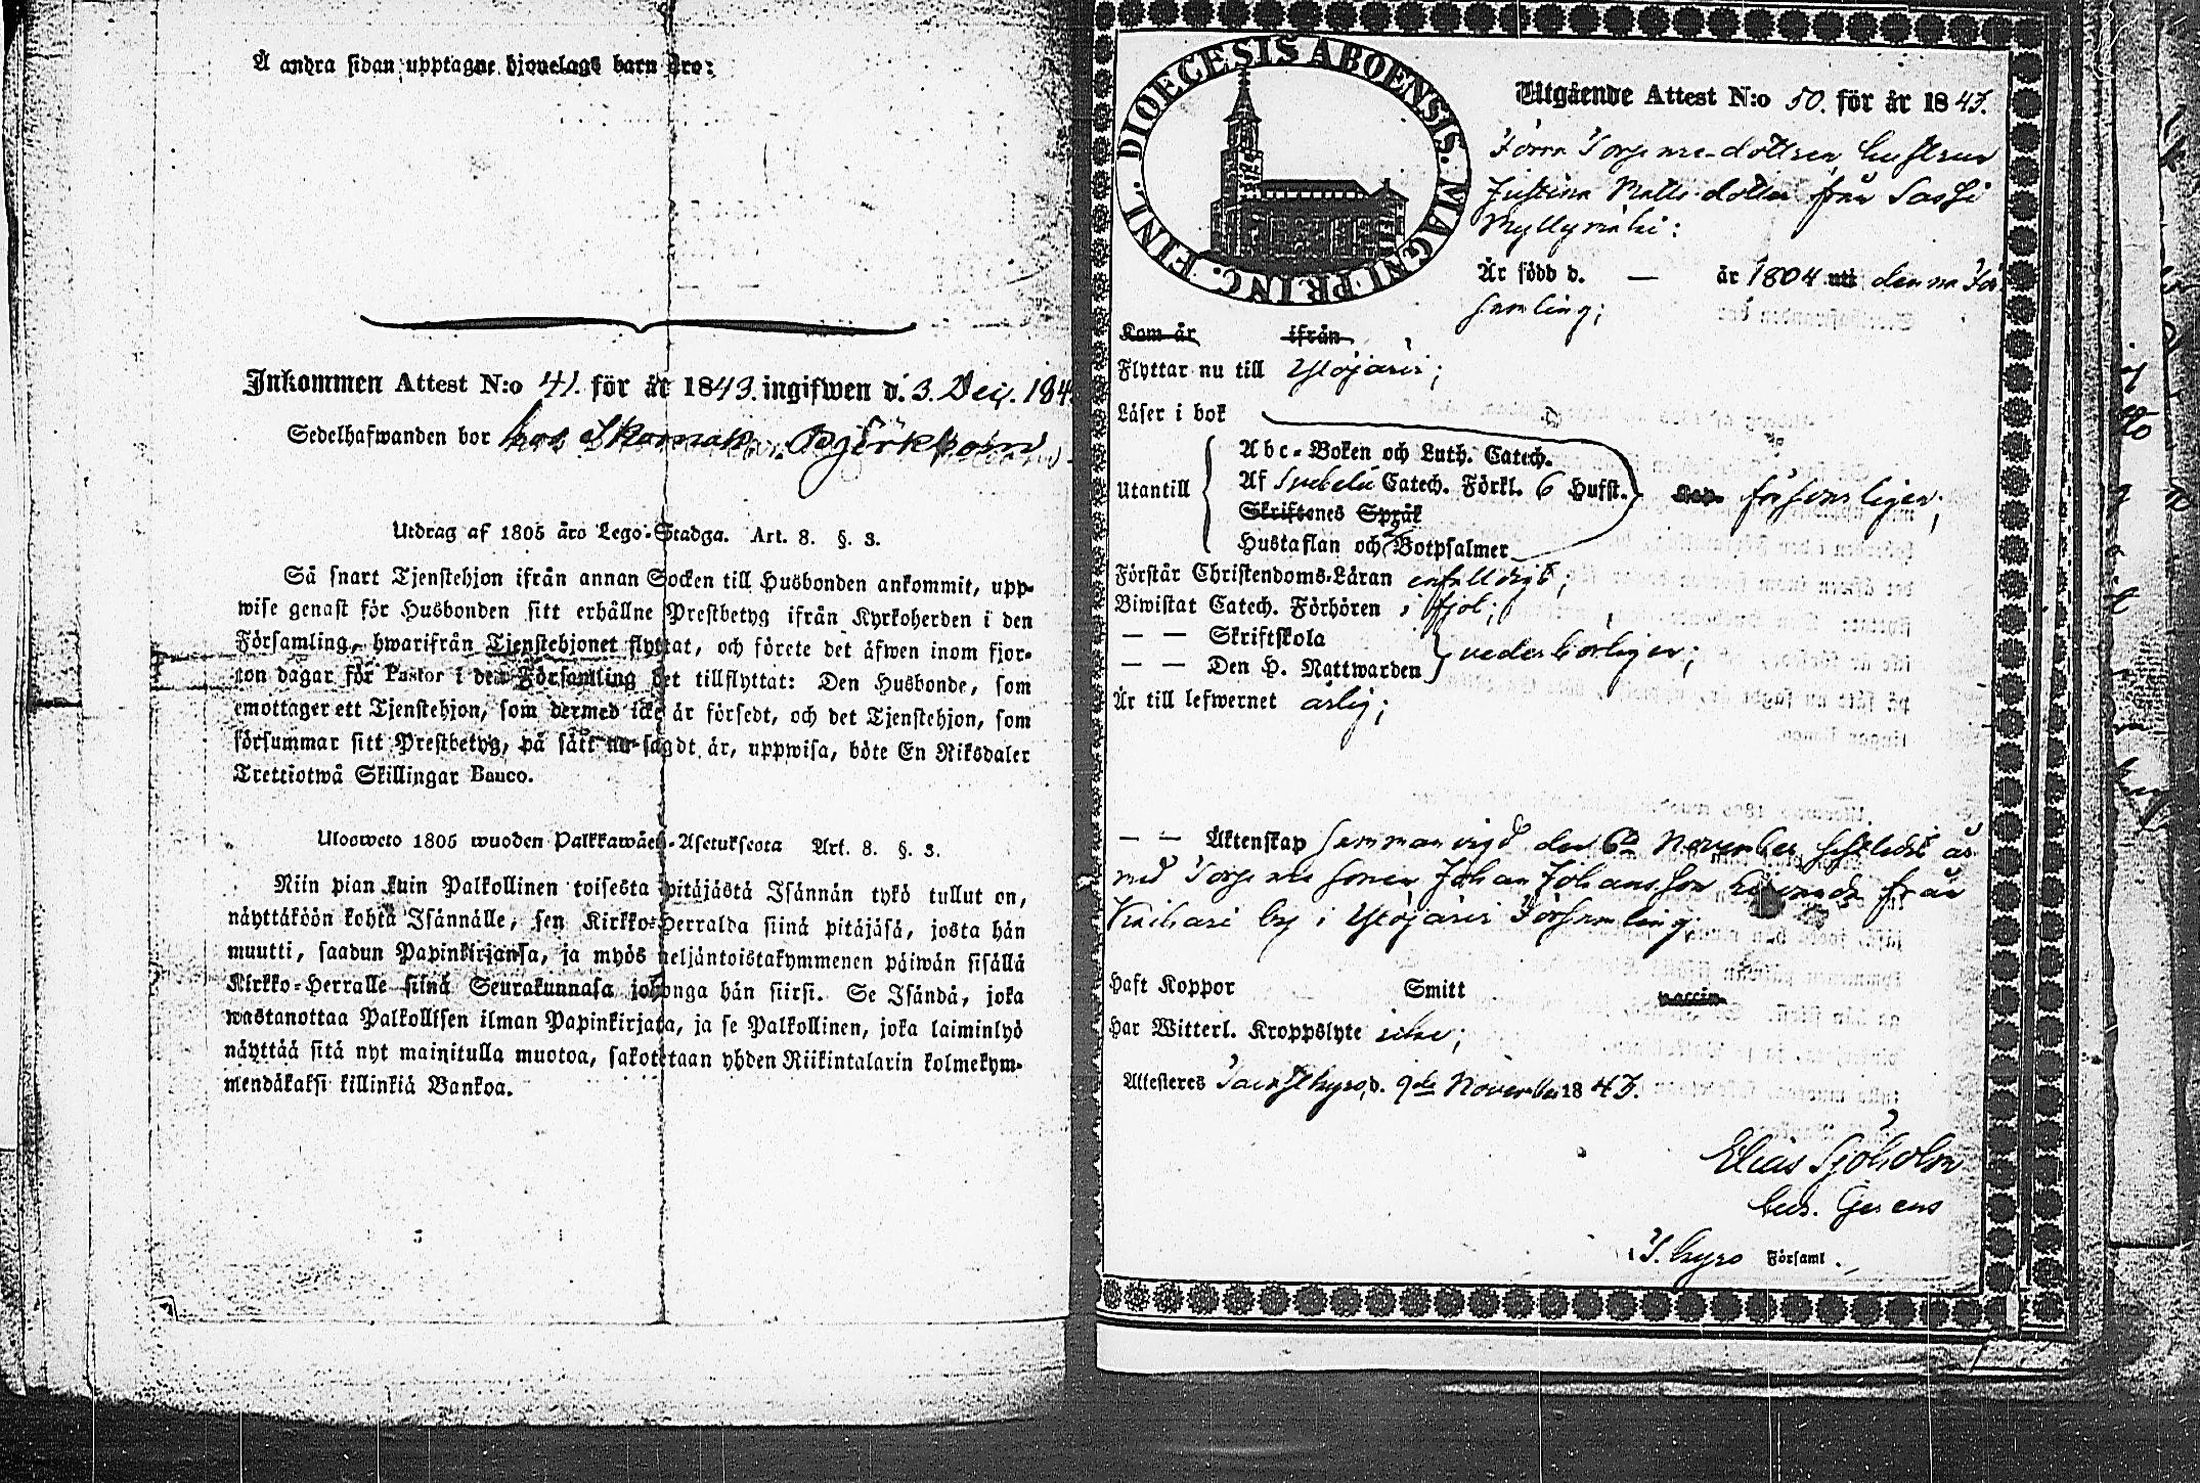 Å andra sidan upptagne hjonelags barn äro:
Inkommen Attest N:o 41. för år 1843. ingifwen d. 3. Dec. 184
Sedelhafwanden bor hos
Utdrag af 1805 års Lego-Stadga. Art. 8. §. 3.
Så snart Tjenstehjon ifrån annan Socken till Husbonden ankommit, upp-
wise genast för Husbonden sitt erhållne Prestbetyg ifrån Kyrkoherden i den
Församling, hwarifrån Tjenstehjonet flyttat, och förete det äfwen inom fjor-
ton dagar för Pastor i den Församling det tillflyttat: Den Husbonde, som
emottager ett Tjenstehjon, som dermed icke är försedt, och det Tjenstehjon, som
försummar sitt Prestbetyg, på sätt nu sagdt är, uppwisa, böte En Riksdaler
Trettiotwå Skillingar Banco.
Ulosweto 1805 wuoden Palkkawäen-Asetuksesta Art. 8. §. 3.
Niin pian kuin Palkollinen toisesta pitäjästä Isännän tykö tullut on,
näyttäköön kohta Isännälle, sen Kirkko-Herralda siinä pitäjäsä, josta hän
muutti, saadun Papinkirjansa, ja myös neljäntoistakymmenen päiwän sisällä
Kirkko-Herralle siinä Seurakunnasa johonga hän siirsi. Se Isändä, joka
wastanottaa Palkollisen ilman Papinkirjata, ja se Palkollinen, joka laiminlyö
näyttää sitä nyt mainitulla muotoa, sakotetaan yhden Riikintalarin kolmekym-
mendäkaksi killinkiä Bankoa.
DIOECESIS ABOENSIS. MAGNI PRINC. FINL.
Utgående Attest N:o 50. för år 1843.
Förra Torparedottren hustrun
Justina Matts dotter från Sassi
Myllymäki:
Är född d. — år 1804 uti denna För
samling;
Kom år ifrån
Flyttar nu till Ylöjärvi;
Läser i bok
Utantill
Abc-Boken och Luth. Catech.
Af Svebelii Catech. Förkl. 6 Hufst.
Skriftenes Språk
Hustaflan och Botpsalmer
försvarligen;
Förstår Christendoms-Läran enfaldigt;
Biwistat Catech. Förhören i fjol;
— — Skriftskola
— — Den H. Nattwarden
vederbörligen;
Är till lefwernet ärlig;
— — Äktenskap sammanvigd den 6te November sistledet år
med Torpare sonen Johan Johansson från
by i Ylöjärvi Församling;
Haft Koppor Smitt vaccin.
Har Witterl. Kroppslyte icke;
Attesteres Tavastkyro, d. 9de November 1843.
Elias Sjöholm
Gerens
i T. kyro Församl.